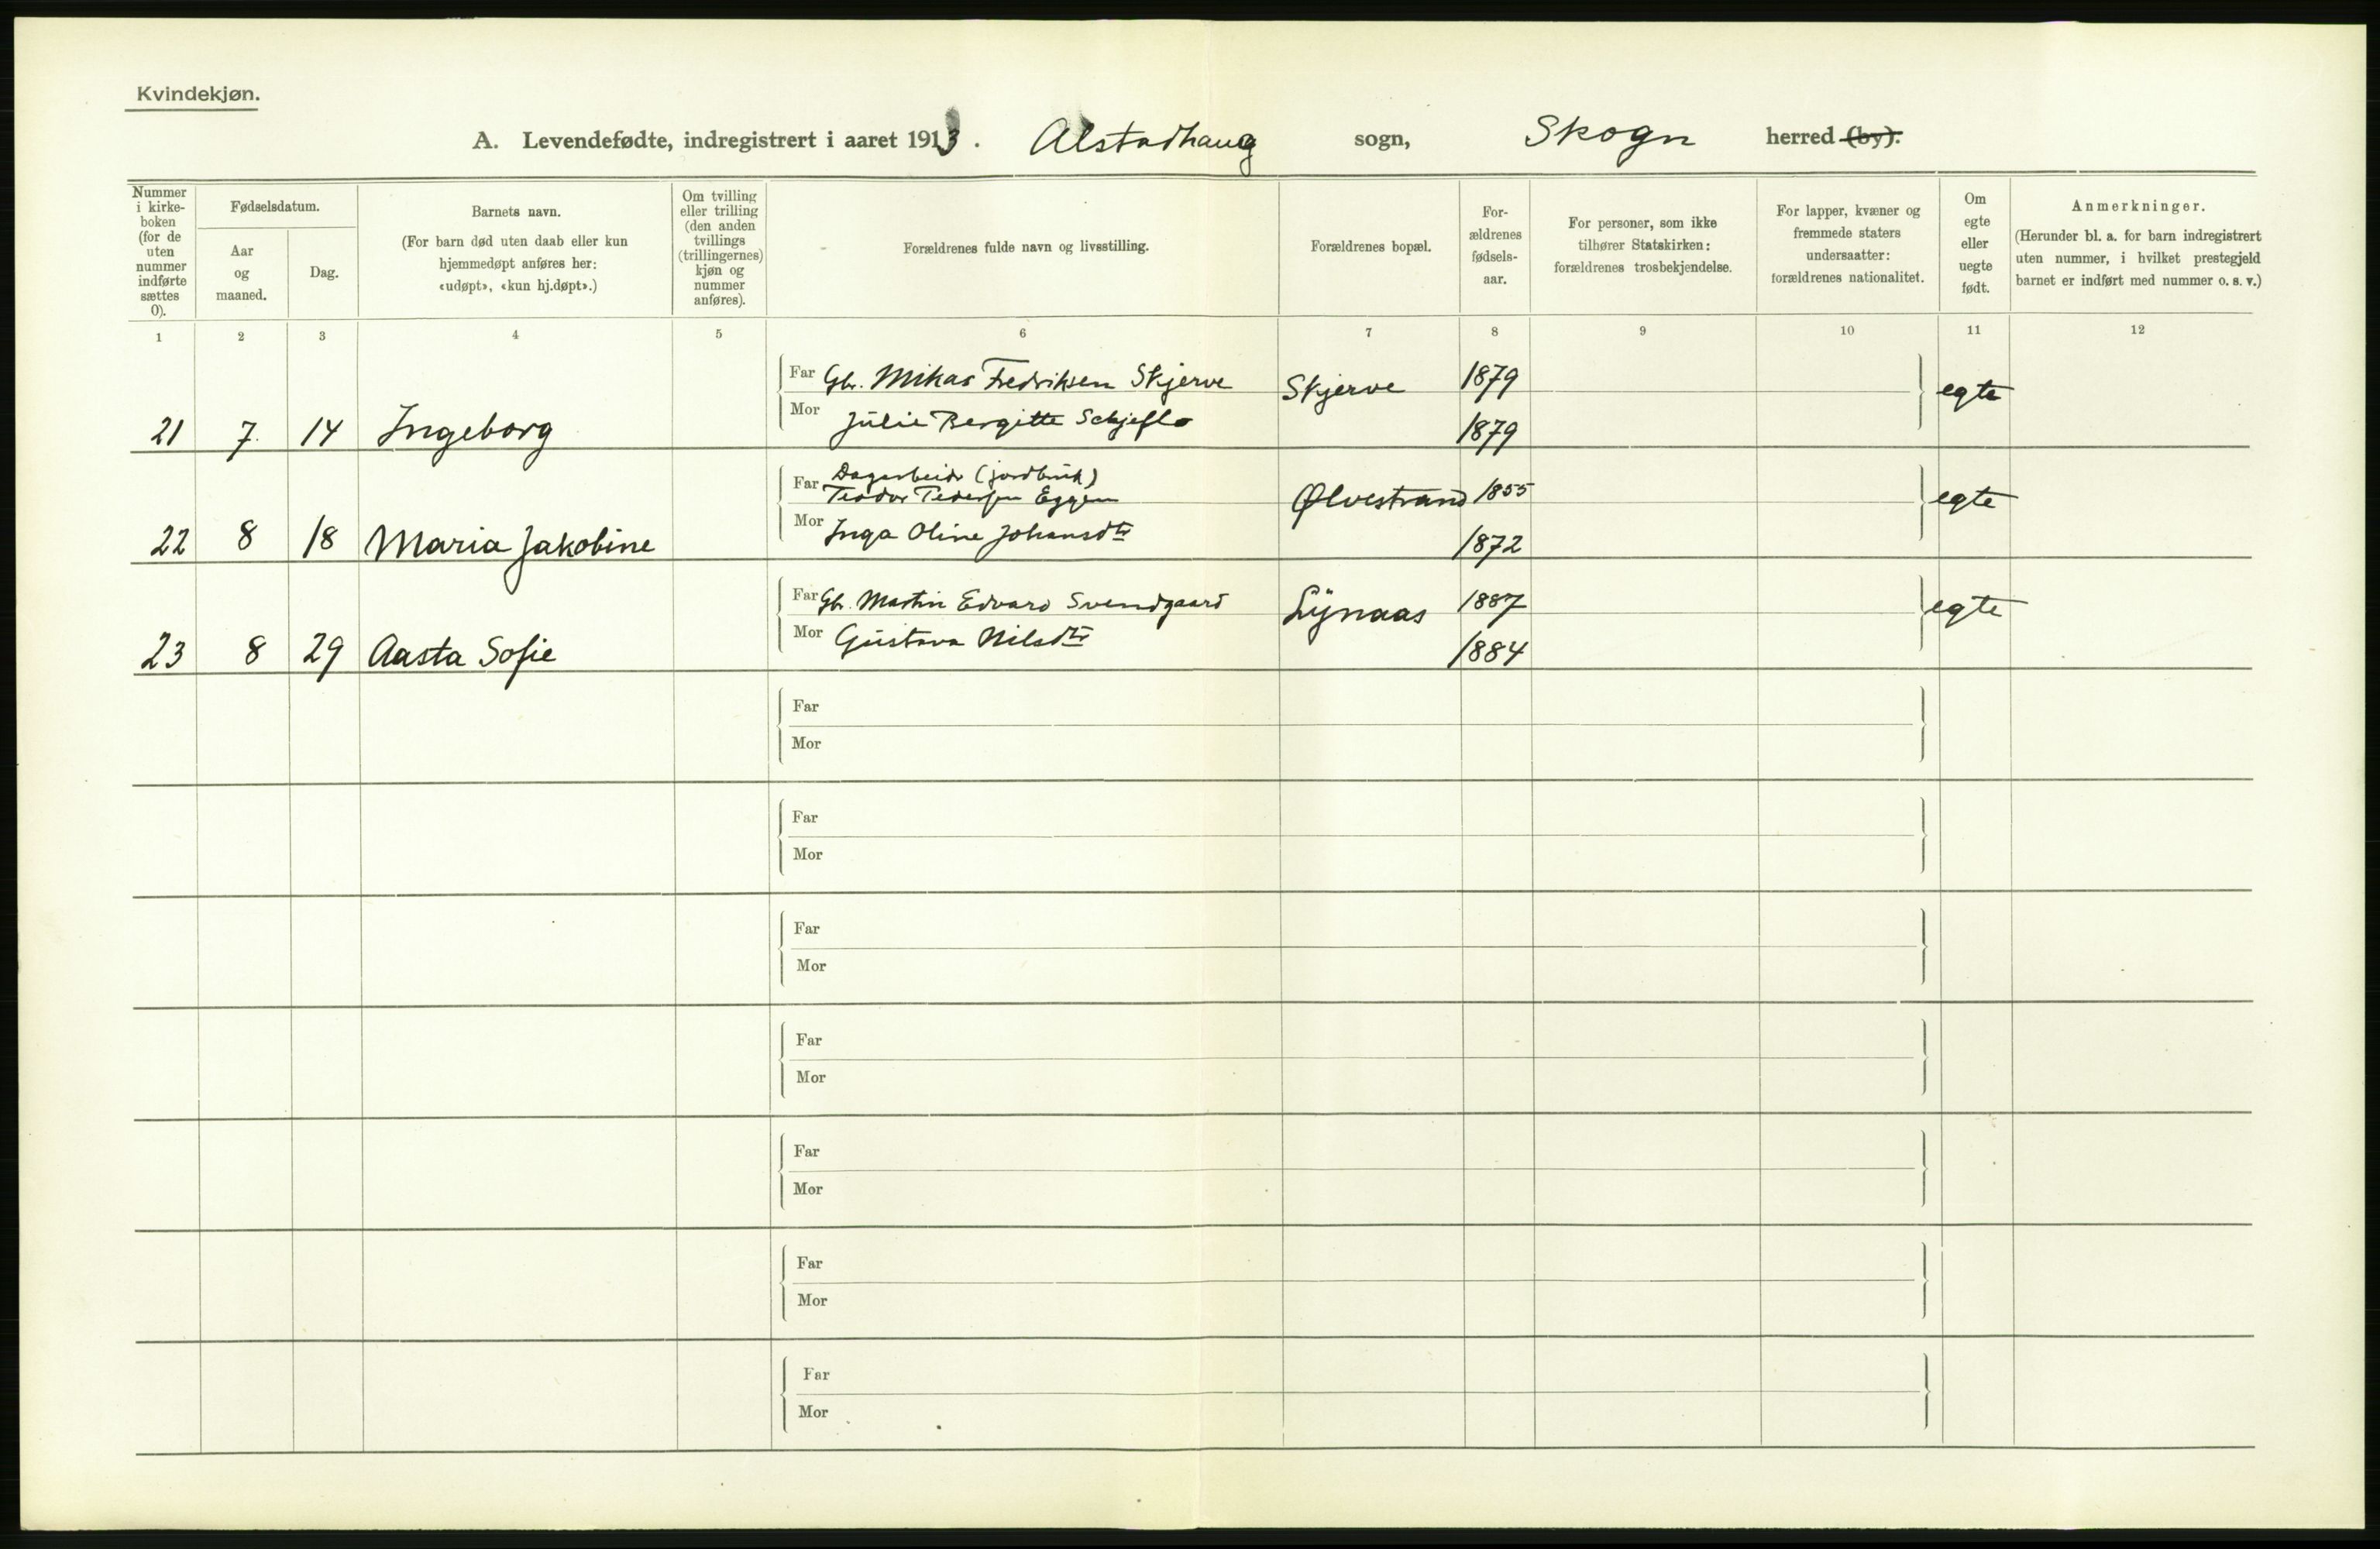 Kvindekjøn.
A. Levendefødte, indregistrert i aaret 1913. Alstadhaug sogn, Skogn herred (by).
Nummer i kirke-boken (for de uten nummer indførte sættes 0).
Fødselsdatum.
Aar og maaned.
Dag.
Barnets navn.
(For barn død uten daab eller kun hjemmedøpt anføres her: «udøpt», «kun hj.døpt».)
Om tvilling eller trilling (den anden tvillings (trillingernes) kjøn og nummer anføres).
Forældrenes fulde navn og livsstilling.
Forældrenes bopæl.
For-ældrenes fødsels-aar.
For personer, som ikke tilhører Statskirken: forældrenes trosbekjendelse.
For lapper, kvæner og fremmede staters undersaatter: forældrenes nationalitet.
Om egte eller uegte født.
Anmerkninger.
(Herunder bl. a. for barn indregistrert uten nummer, i hvilket prestegjeld barnet er indført med nummer o. s. v.)
1 2 3 4 5 6 7 8 9 10 11 12
Far Gbr. Mikas Fredriksen Skjerve Skjerve 1879 egte
21 7. 14 Ingeborg Mor Julie Bergitte Schjeflo 1879
Far Dagarbeidr (jordbruk)
Teodor Pedersen Eggen Ølvestrand 1855 egte
22 8 18 Maria Jakobine Mor Inga Oline Johansdtr 1872
Far Gbr. Martin Edvard Svendgaard Lynaas 1887 egte
23 8 29 Aasta Sofie Mor Gustava Nilsdtr 1884
Far
Mor
Far
Mor
Far
Mor
Far
Mor
Far
Mor
Far
Mor
Far
Mor